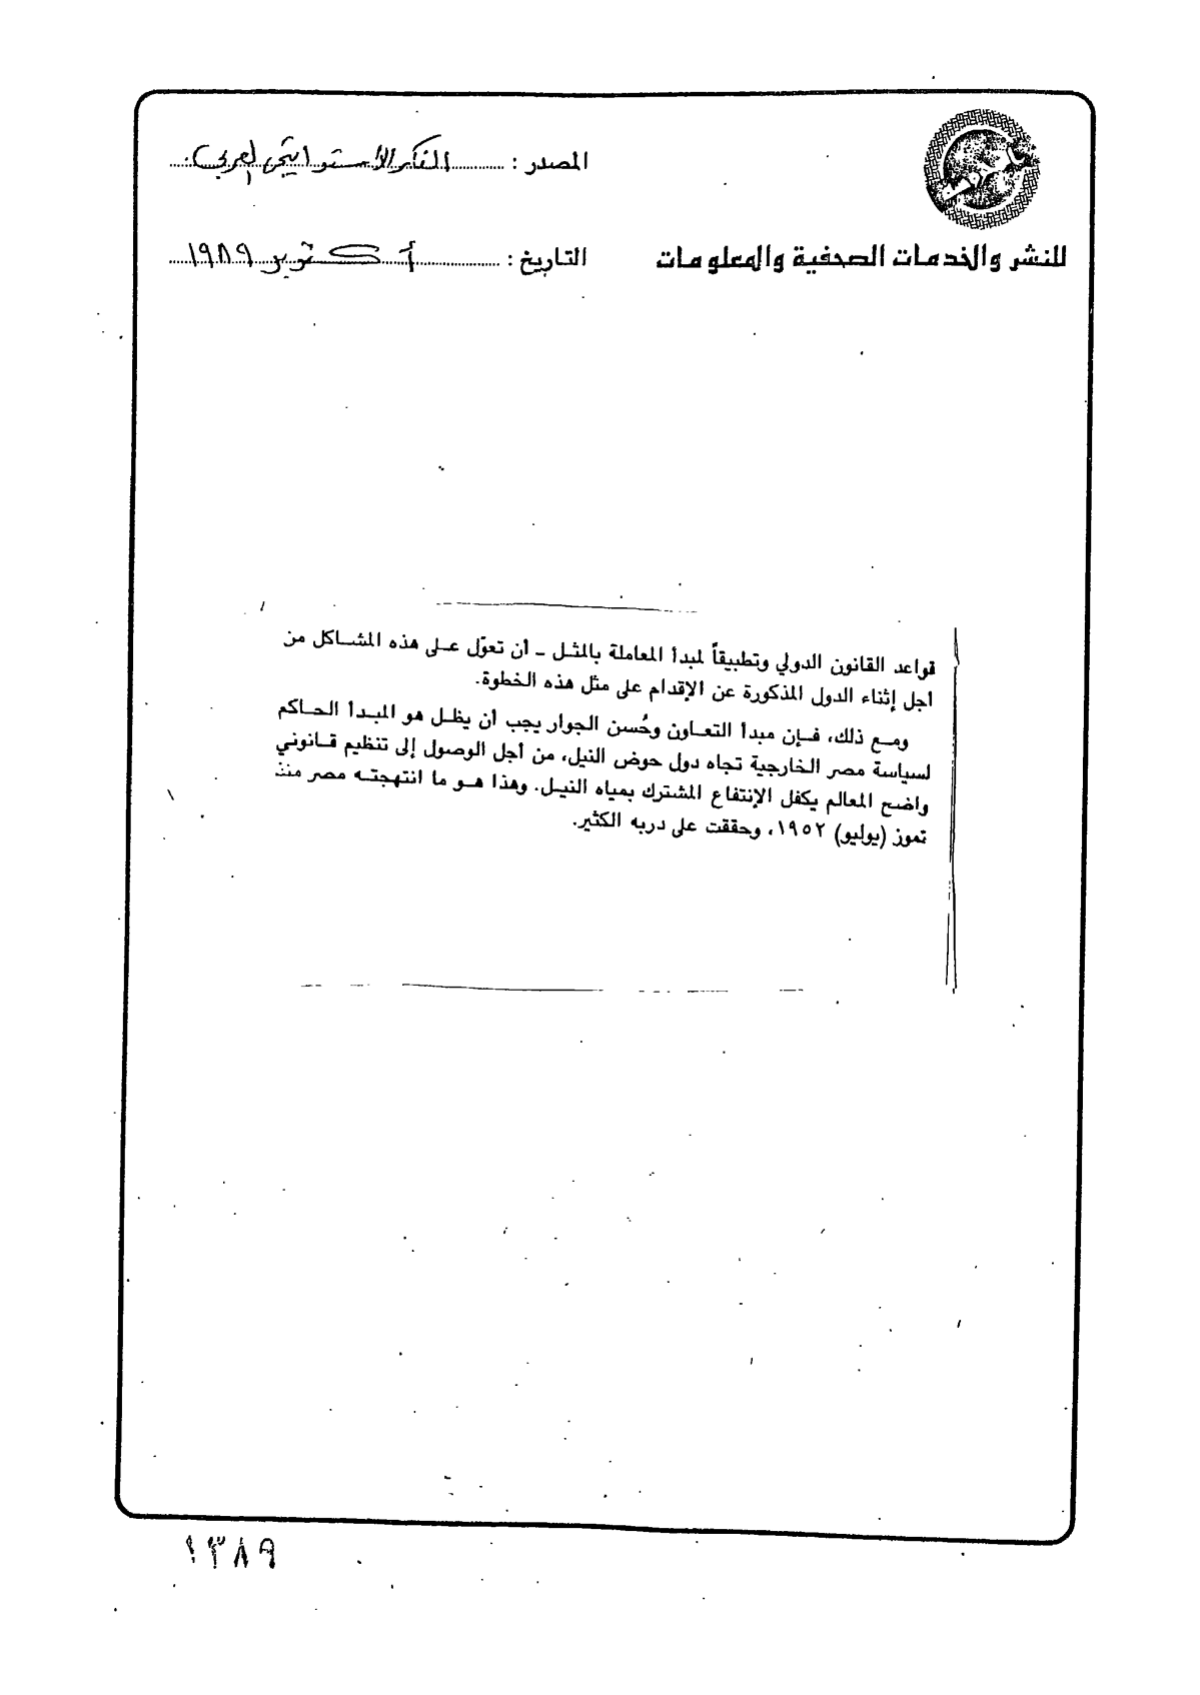 المصدر : الفكر الاستراتيجي العربي
للنشر والخدمات الصحفية والمعلومات
التاريخ : أكتوبر ١٩٨٩
قواعد القانون الدولي وتطبيقاً لمبدأ المعاملة بالمثل - أن تعوّل على هذه المشاكل من
أجل إثناء الدول المذكورة عن الإقدام على مثل هذه الخطوة.
ومع ذلك، فإن مبدأ التعاون وحُسن الجوار يجب أن يظل هو المبدأ الحاكم
لسياسة مصر الخارجية تجاه دول حوض النيل، من أجل الوصول إلى تنظيم قانوني
واضح المعالم يكفل الإنتفاع المشترك بمياه النيل. وهذا هو ما انتهجته مصر منذ
تموز (يوليو) ١٩٥٢، وحققت على دربه الكثير.
١٣٨٩